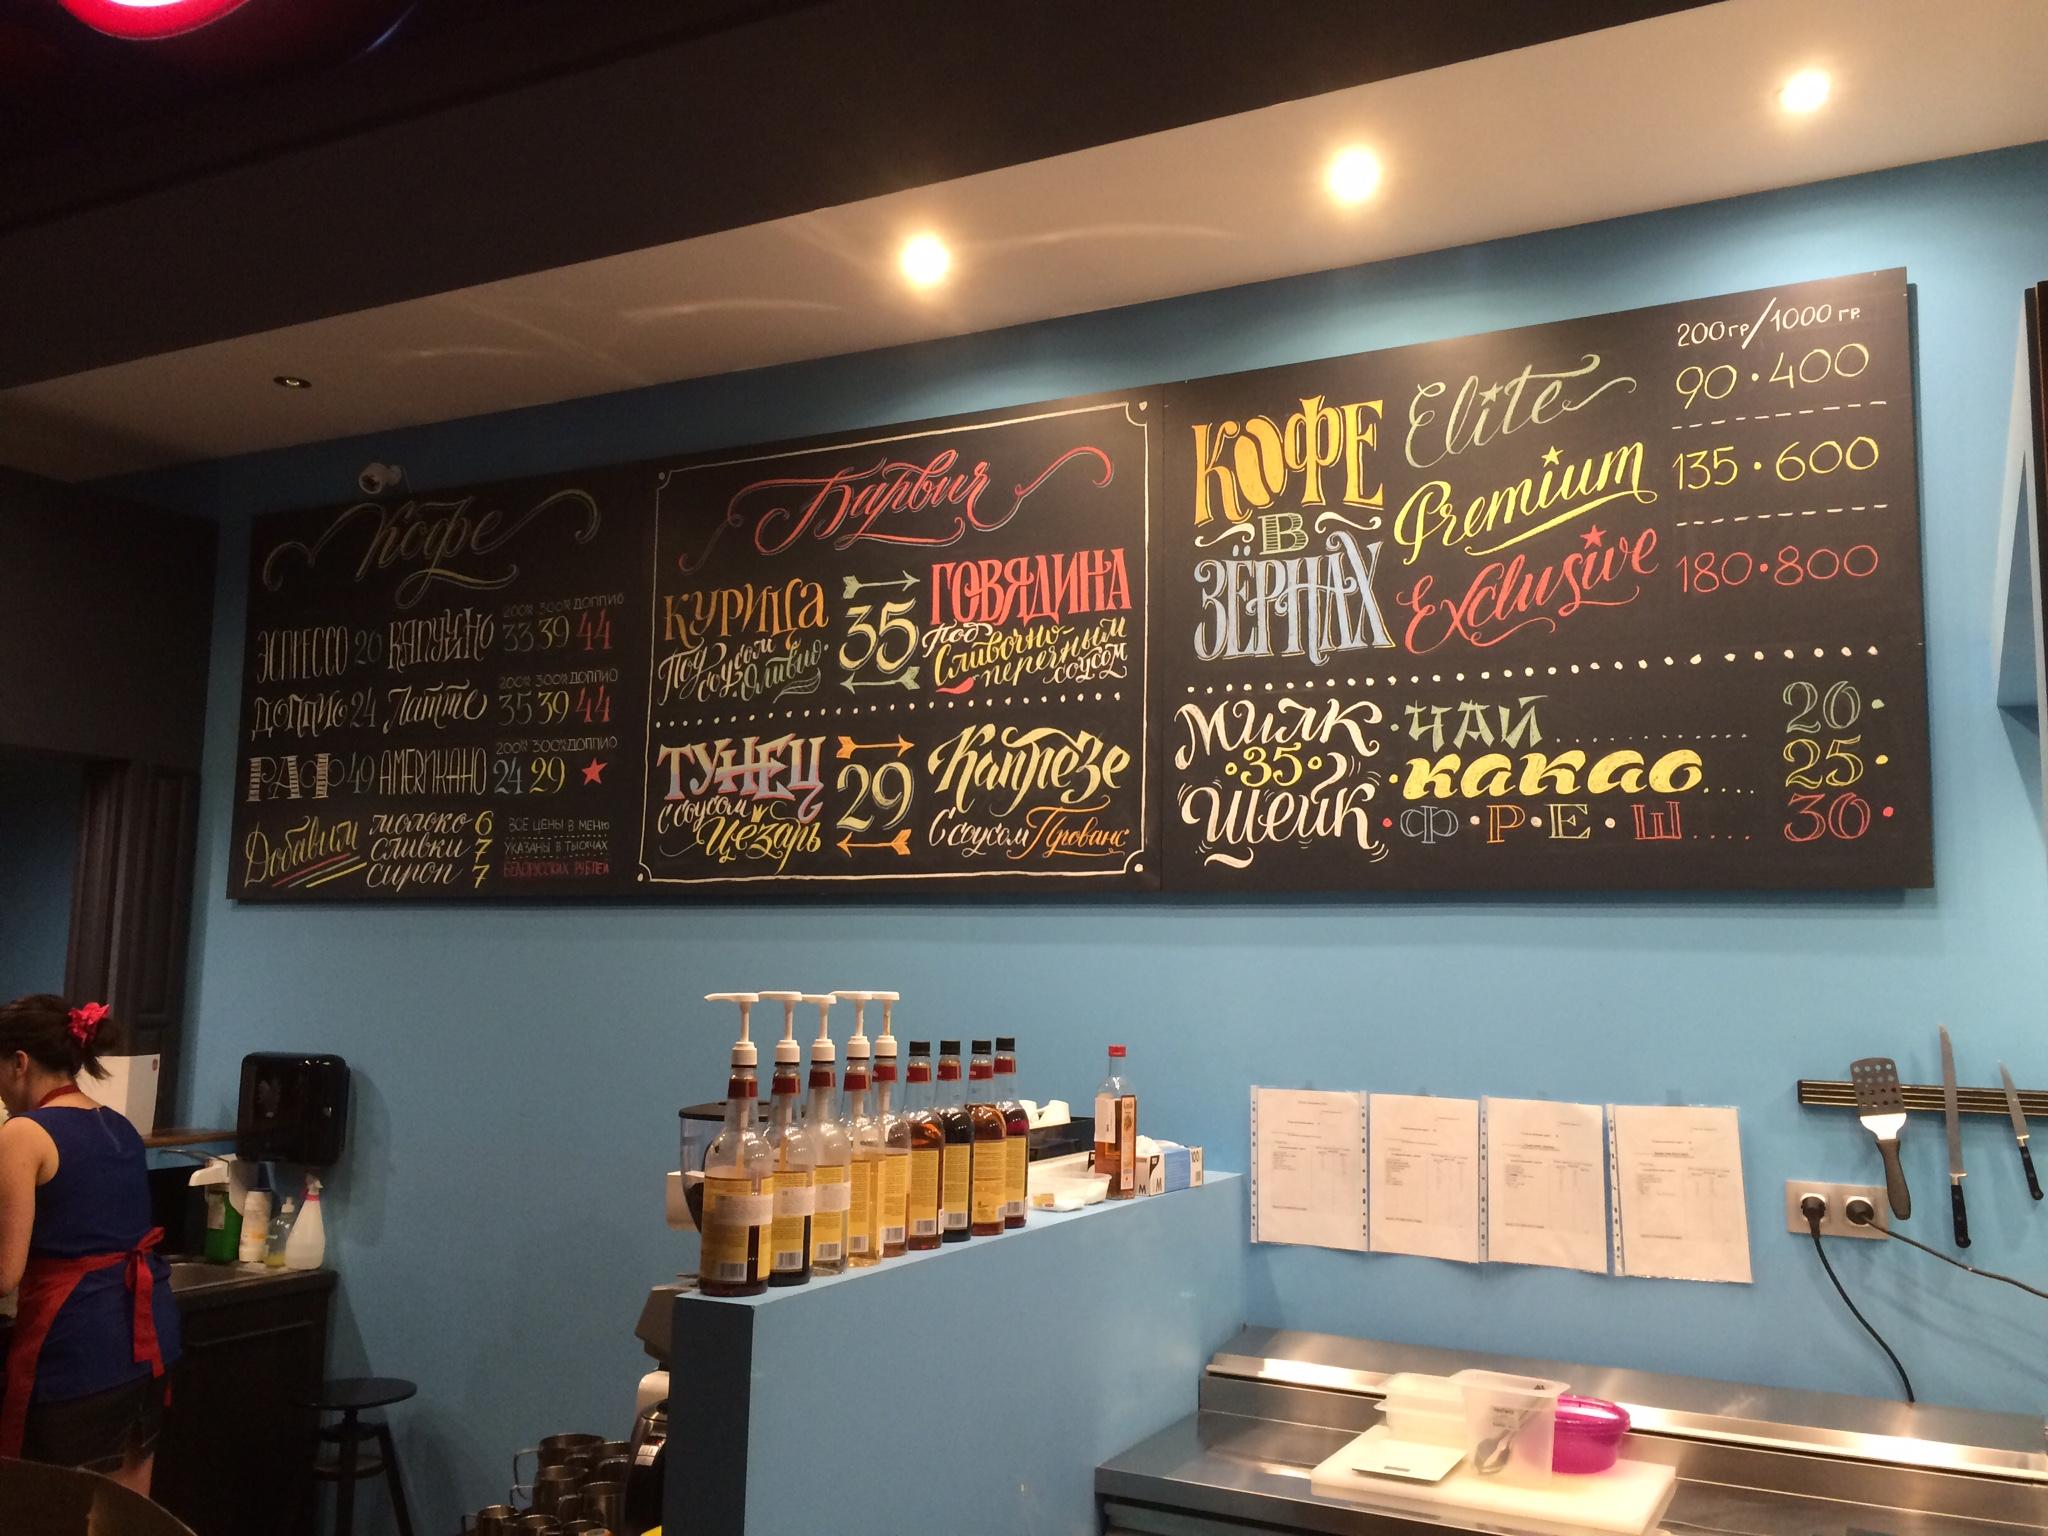 Кофе
ЭСПРЕССО 20 КАПУЧИНО 33 39 44
200мл 300мл ДОППИО
ДОППИО 24 Латте 35 39 44
200мл 300мл ДОППИО
РАФ 49 АМЕРИКАНО 24 29
200мл 300мл ДОППИО
Добавим
молоко 6
сливки 7
сироп 7
ВСЕ ЦЕНЫ В МЕНЮ
УКАЗАНЫ В ТЫСЯЧАХ
БЕЛОРУССКИХ РУБЛЕЙ
Барвич
КУРИЦА
Под соусом
Оливио
35
ГОВЯДИНА
Под
Сливочно-
перечным
соусом
ТУНЕЦ
с соусом
Цезарь
29
Капрезе
С соусом Прованс
КОФЕ
В
ЗЁРНАХ
200гр/1000 гр.
Elite 90 · 400
Premium 135 · 600
Exclusive 180 · 800
Милк
35
Шейк
ЧАЙ 20
какао 25
Ф Р Е Ш 30